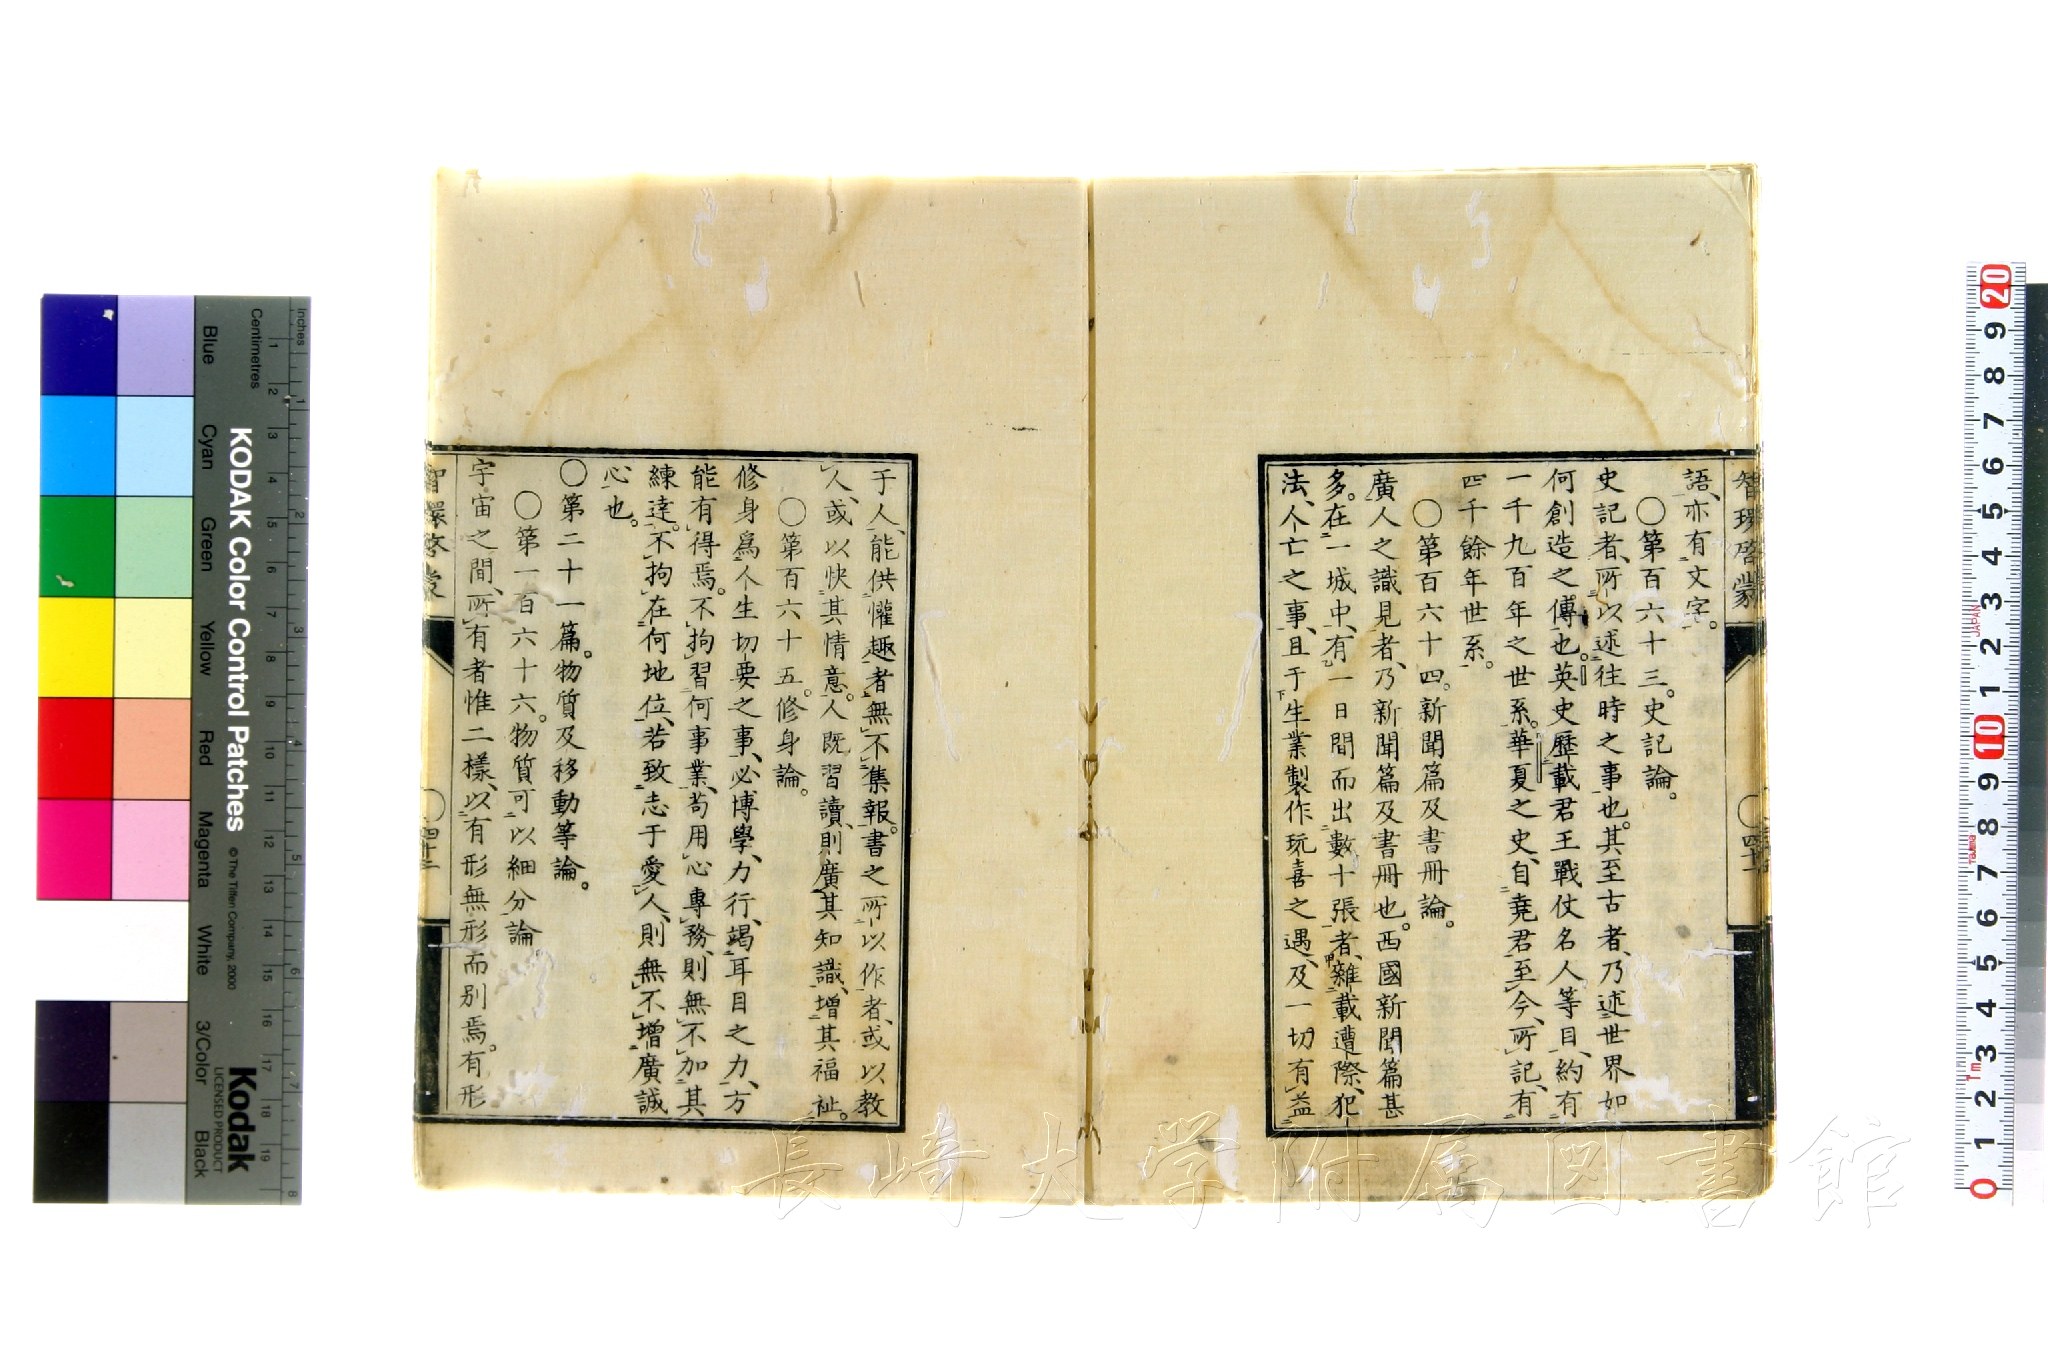 智環啓蒙
四十一
語、亦有文字。
〇第百六十三。史記論。
史記者、所以述往時之事也。其至古者、乃述世界如
何創造之傳也。英史歷載君王戰仗名人等目、約有
一千九百年之世系。華夏之史、自堯君至今、所記、有
四千餘年世系。
〇第百六十四。新聞篇及書冊論。
廣人之識見者、乃新聞篇及書冊也。西國新聞篇甚
多。在一城中、有一日間而出數十張者、雜載遭際、犯
法、人亡之事、且于生業製作玩喜之遇、及一切有益
于人、能供懽趣者、無不集報。書之所以作者、或以教
人、或以快其情意。人既習讀、則廣其知識、增其福祉。
〇第百六十五。修身論。
修身爲人生切要之事、必博學、力行、竭耳目之力、方
能有得焉。不拘習何事業、苟用心專務、則無不加其
練達。不拘在何地位、若致志于愛人、則無不增廣誠
心也。
〇第二十一篇。物質及移動等論。
〇第一百六十六。物質可以細分論
宇宙之間、所有者惟二樣、以有形無形而別焉。有形
智環啓蒙
四十二
長崎大学附属図書館
Inches
Centimetres
Blue
Cyan
Green
Yellow
Red
Magenta
White
3/Color
Black
KODAK Color Control Patches
© The Tiffen Company, 2000
Kodak
LICENSED PRODUCT
1 2 3 4 5 6 7 8 9 10 11 12 13 14 15 16 17 18 19
1 2 3 4 5 6 7 8
20 9 8 7 6 5 4 3 2 1 10 9 8 7 6 5 4 3 2 1 0
JAPAN